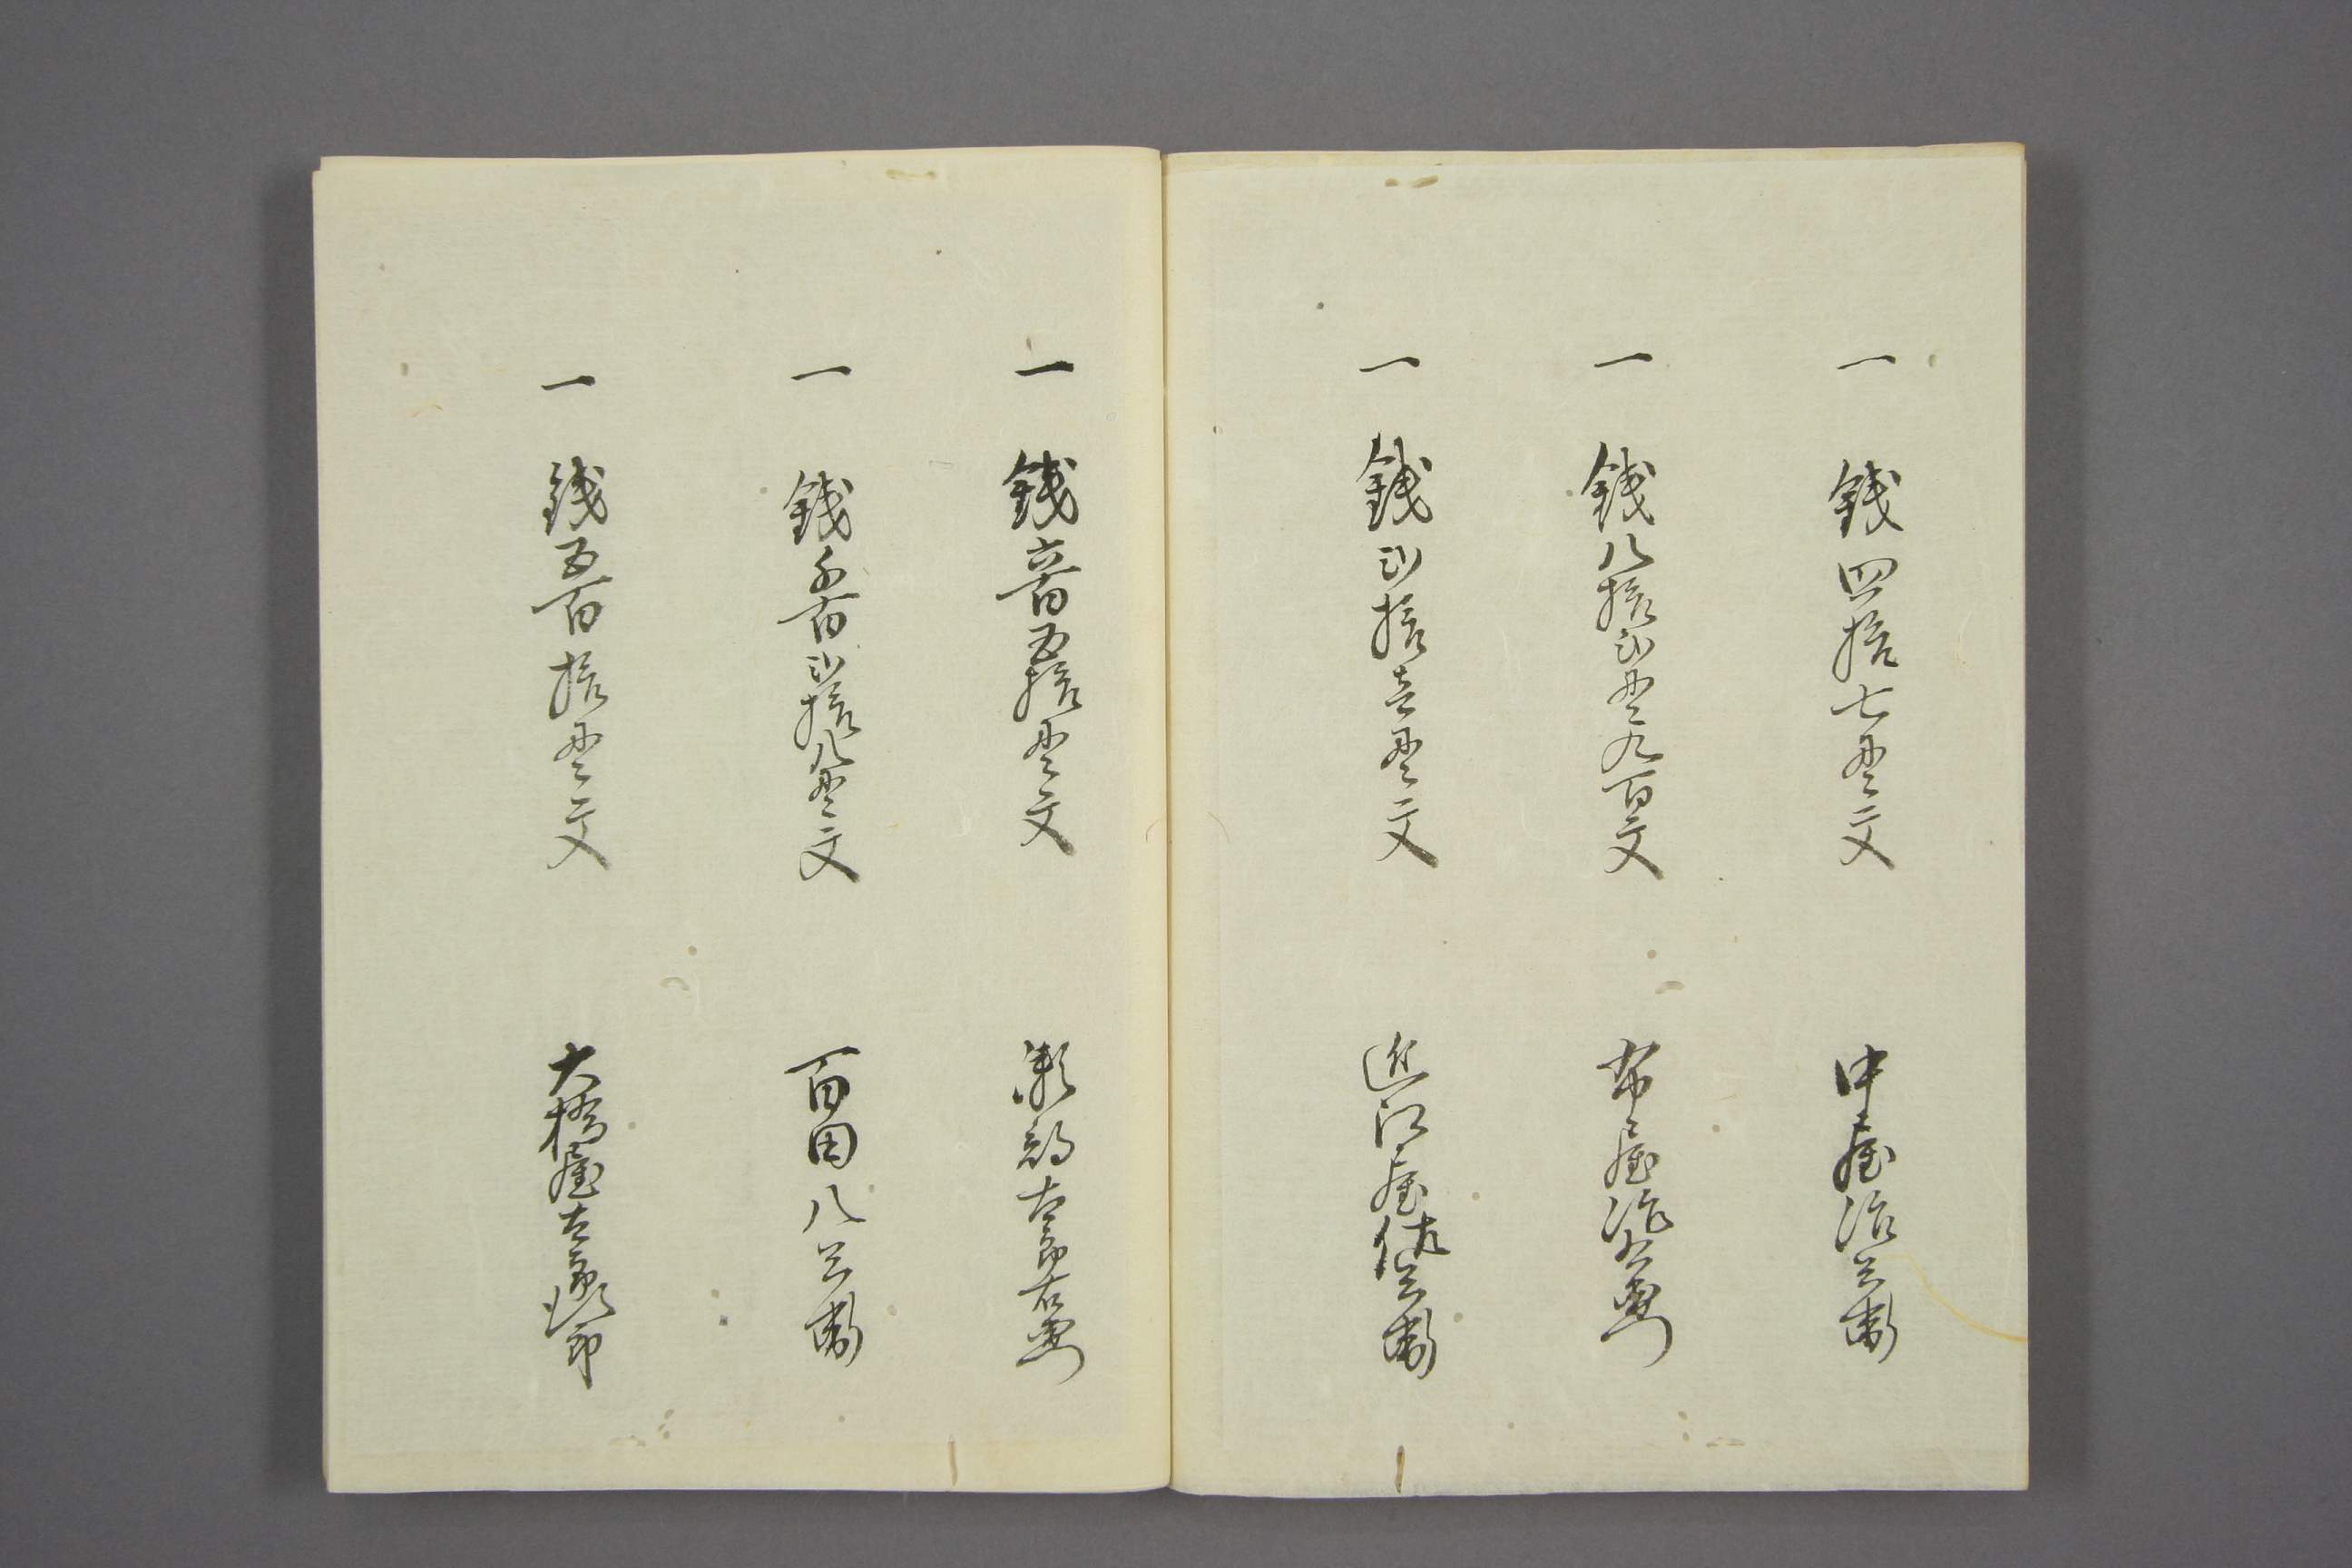 一 銭四拾七貫文 中屋治兵衛
一 銭八拾弐貫九百文 布屋治右衛門
一 銭弐拾壱貫文 近江屋佐兵衛
一 銭六百五拾貫文 太郎右衛門
一 銭千百弐拾八貫文 百田八兵衛
一 銭五百拾貫文 大橋屋吉郎